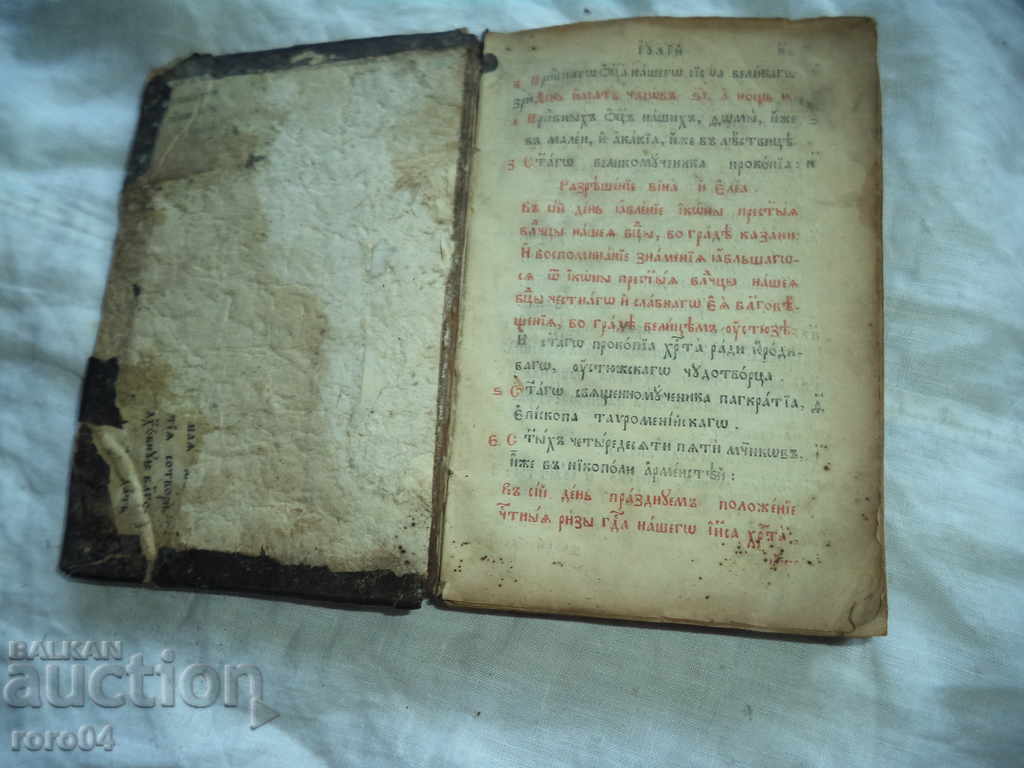 І҆ꙋлїй
нашегѡ сїсѡа великагѡ
зри День и҆мать часѡвъ, а нощь и҃.
наших, дѡмы, и҆же
в мален, и҆ а҆какїа, и҆же въ лѣствицѣ
С҆та́гѡ великомꙋ́ченика проко́пїа: и҃
Разрѣшенїе вїна̀ и҆ є҆леа.
Въ сїй день ꙗ҆вленїе і҆кѡны прест҃ыѧ
влⷣчцы нашеѧ бц҃ы, во градѣ казани:
И҆ воспоминанїе знаменїѧ ꙗ҆вльшагѡ-
сѧ ѿ і҆кѡны прест҃ы́ѧ влⷣчцы нашеѧ
бц҃ы честнагѡ и҆ славнагѡ є҆ѧ̀ бл҃говѣ-
щенїѧ, во градѣ велицѣмъ оу҆стюзѣ.
И҆ ст҃агѡ прокопїа хрⷭ҇та̀ ради ю҆роди-
вагѡ, оу҆стюжскагѡ чꙋдотво́рца.
Ст҃агѡ свѧщенномꙋченика пагкратїа,
Є҆пⷭ҇копа таѵроменїйскагѡ.
Є҃. Ст҃ыхъ четыредесѧти пѧти мч҃нкѡвъ,
и҆же въ нїкополи а҆рменстѣй:
Въ сїй день праздꙋемъ положенїе
чⷭ҇тныѧ ризы гдⷭ҇а нашегѡ і҆и҃са хрⷭ҇та̀:
BALKAN
auction
roro04